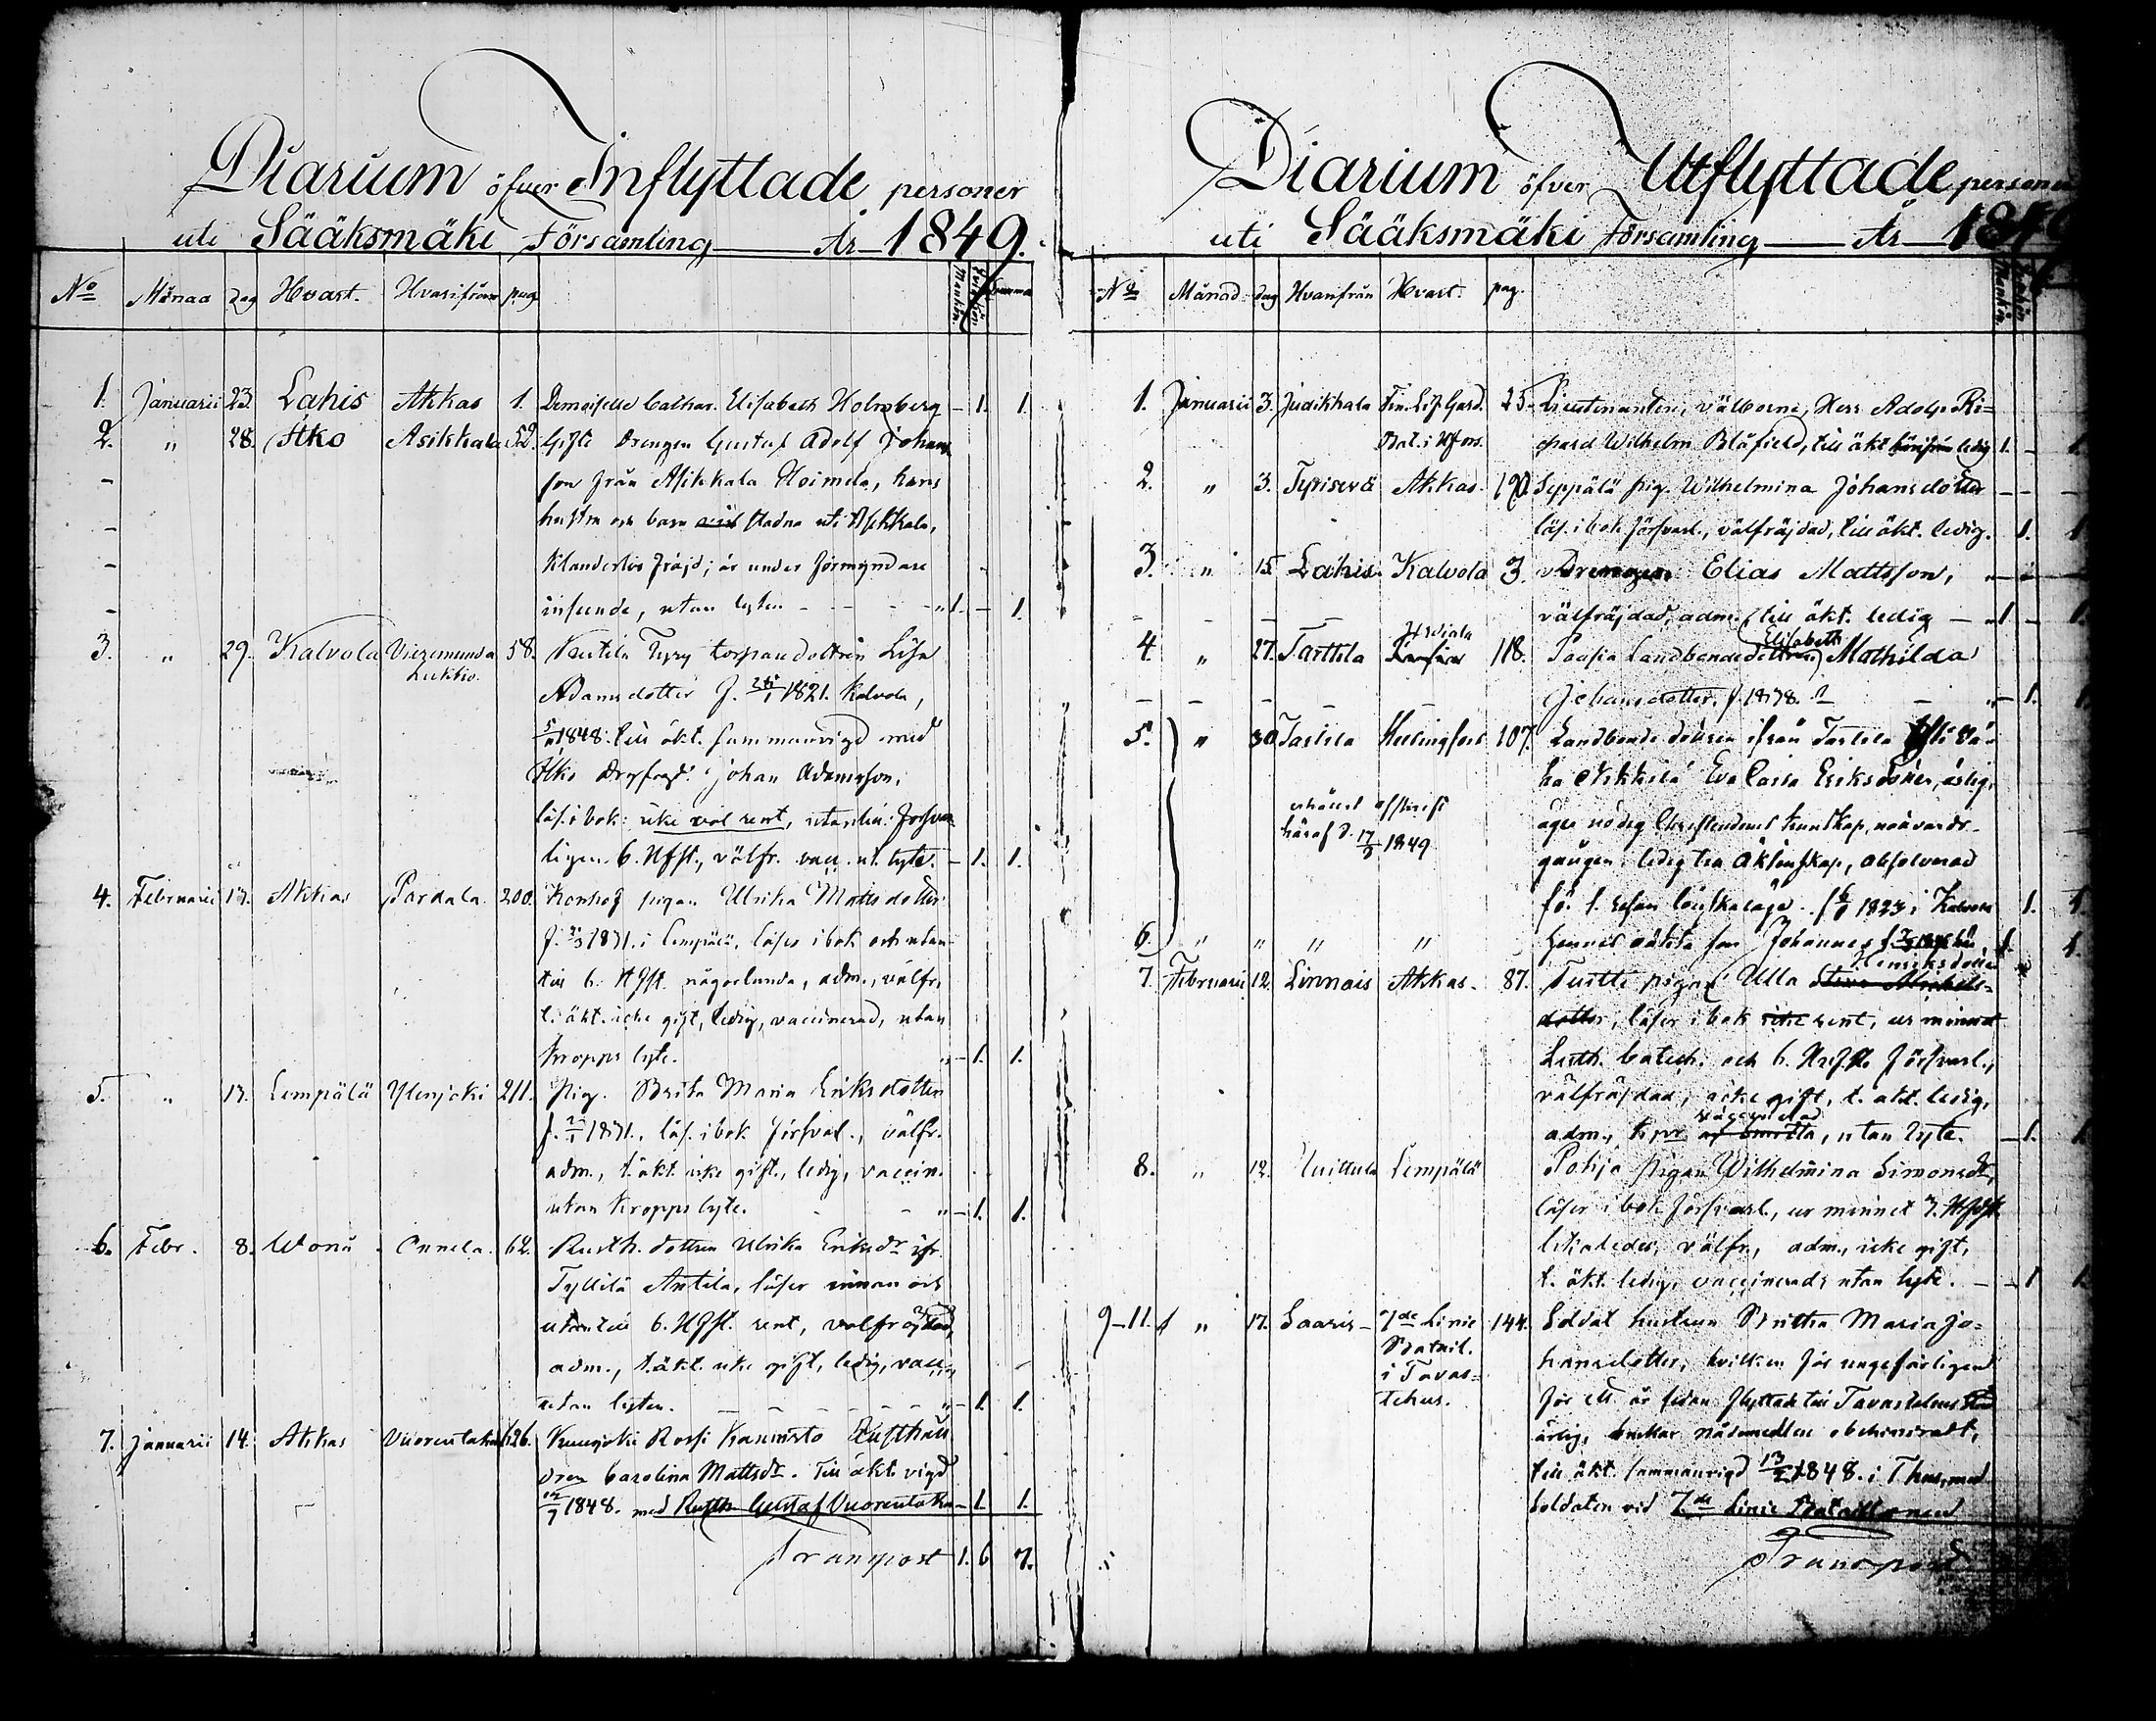 Diarium öfver Inflyttade personer
uti Sääksmäki Församling År 1849.
No Månad Dag Hvart. Hvarifrån pag. Mankön Qvinkön Summa
1. Januarii 23. Lahis Akkas 1. Demoiselle Cathar. Elisabeth Holmberg - 1. 1.
2. " 28. Itko Asikkala 52. Gifte Drengen Gustaf Adolf Johans
son från Asikkala Hoimela, hans
hustru och barn stadna uti Asikkala,
Klanderlös fräjd; är under förmyndare
inseende, utan lyten - - - " 1. - 1.
3. " 29. Kalvola 58. torpare dottren Lisa
Adams dotter f. 1821. Kalvola,
1848. till äkt. sammanvigd med
Johan Adamsson,
läs. i bok: icke väl rent, utantill: försvar
ligen 6. Hfst., välfr. vacc. ut. lyte. - 1. 1.
4. Februarii 13. Akkas Pardala 200. pigan Ulrika Matts dotter
f. 1831. i Lempälä, läser i bok och utan
till 6. Hfst. någorlunda, adm., välfr.
t. äkt. icke gift, ledig, vaccinerad, utan
kropps lyte. " - 1. 1.
5. " 13. Lempälä Ylenjoki 211. Pig. Brita Maria Eriks dotter
f. 1831., läs. i bok försval., välfr.
adm., t. äkt. icke gift., ledig, vaccin.
utan kropps lyte. - - " - 1. 1.
6. Febr. 8. Wanå Annela 62. Rusth. dottren Ulrika Eriksdr ifr.
Tyllilä Antila, läser innan och
utan till 6. Hfst. rent, välfräjdad,
adm., t. äkt. icke gift, ledig, vacc.,
utan lyten. - - - - " - 1. 1.
7. Januarii 14. Akkas Vuorentaka 626. Rossi Kannisto
Carolina Mattsdr. till äkt. vigd
1848. med Rusth. Gustaf Vuorentaka - 1. 1.
Transport 1. 6 7.
Diarium öfver Utflyttade personer
uti Sääksmäki Församling År
No Månad dag Hvarifrån Hvart. pag. Mankön
1. Januarii 3. Judikkala Fin. Lif Gard. 25. Lieutenanten, välborne, Herr Adolf Ri=
Bat. i Hfors. chard Wilhelm Blåfield, till äkt ledig 1. - 1.
2. " 3. Akkas 190. Seppälä pig. Wilhelmina Johansdotter - - -
läs. i bok försvarl., välfräjdad, till äkt. ledig. 1. 1
3. " 15. Lahis Kalvola 3. Drengen Elias Mattsson, " - -
välfräjdad, adm., till äkt. ledig - " 1 - 1.
4. " 27. Tarttila 118. Paapia Landbonde dottren Elisabeth Mathilda
Johansdotter, f. - - " - 1. 1
5. " 30 Tartila Helsingfors 107. Landbonde dottren ifrån Tartila
Eva Caisa Eriksdotter, ärlig,
äger nödig Christendoms kunskap, nattvards-
gången, ledig till äktenskap, absolverad
erhållit afskrift
häraf d. 17/9 1849
för 1. resan lönskaläge. f. 1823 i Kalvola 1. 1.
6. " " " " hennes oäkta son Johannes 1. 1.
7. Februarii 12. Linnais Akkas. 87. Tuitti pigan Ulla Henriksdotter Stina Michels=
dotter, läser i bok icke rent, ur minnet
Luth. Catech. och 6. Hfst. försvarl.,
välfräjdad, icke gift, t. äkt. ledig,
adm., vaccinerad, utan lyte. - 1. 1
8. " 12. Huittula Lempälä Pohja pigan Wilhelmina Simonsdr,
läser i bok försvarl., ur minnet 3. Hfst.
likaledes, välfr., adm., icke gift,
t. äkt. ledig, vaccinerad, utan lyte. - - 1 1.
9-11. " 17. Saaris - 7de Linie 144. Soldat hustrun Britha Maria Jo=
Batail. hansdotter, hvilken för ungefärligen
i Tavas= för ett år sedan flyttade till Tavastehus
tehus. ärlig, brukar nådemedlen obehindradt,
till äkt. sammanvigd 1848. i Thus, med
Soldaten vid 7de Linie Bataillonen
Transport